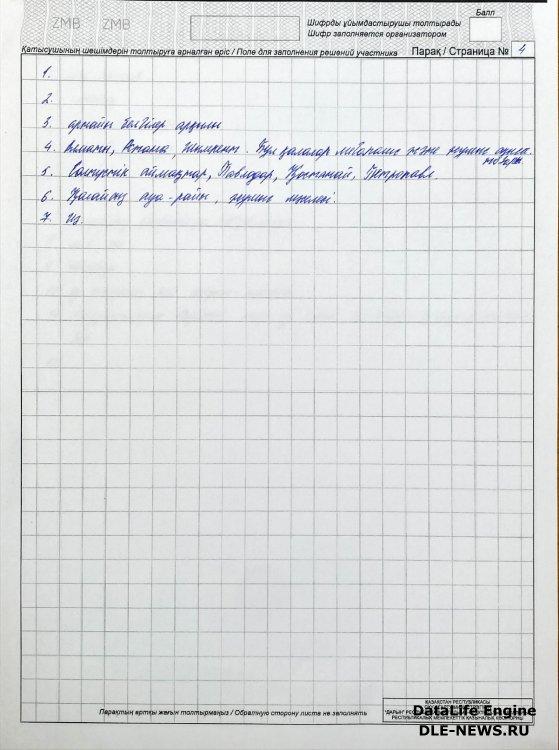 Балл
ZMB ZMB
Шифрды ұйымдастырушы толтырады
Шифр заполняется организатором
Қатысушының шешімдерін толтыруға арналған өріс / Поле для заполнения решений участника Парақ / Страница № 4
1.
2.
3. арнайы белгілер арқылы
4. Алматы, Астана, Шымкент. Бұл қалалар мегаполис және
5. Солтүстік аймақтар, Павлодар, Қостанай, Петропавл.
6. Қолайсыз ауа-райы, жұмыс
7. Иә.
Парақтың артқы жағын толтырмаңыз / Обратную сторону листа не заполнять
ҚАЗАҚСТАН РЕСПУБЛИКАСЫ
РЕСПУБЛИКАЛЫҚ МЕМЛЕКЕТТІК ҚАЗЫНАЛЫҚ КӘСІПОРНЫ
DataLife Engine
DLE-NEWS.RU